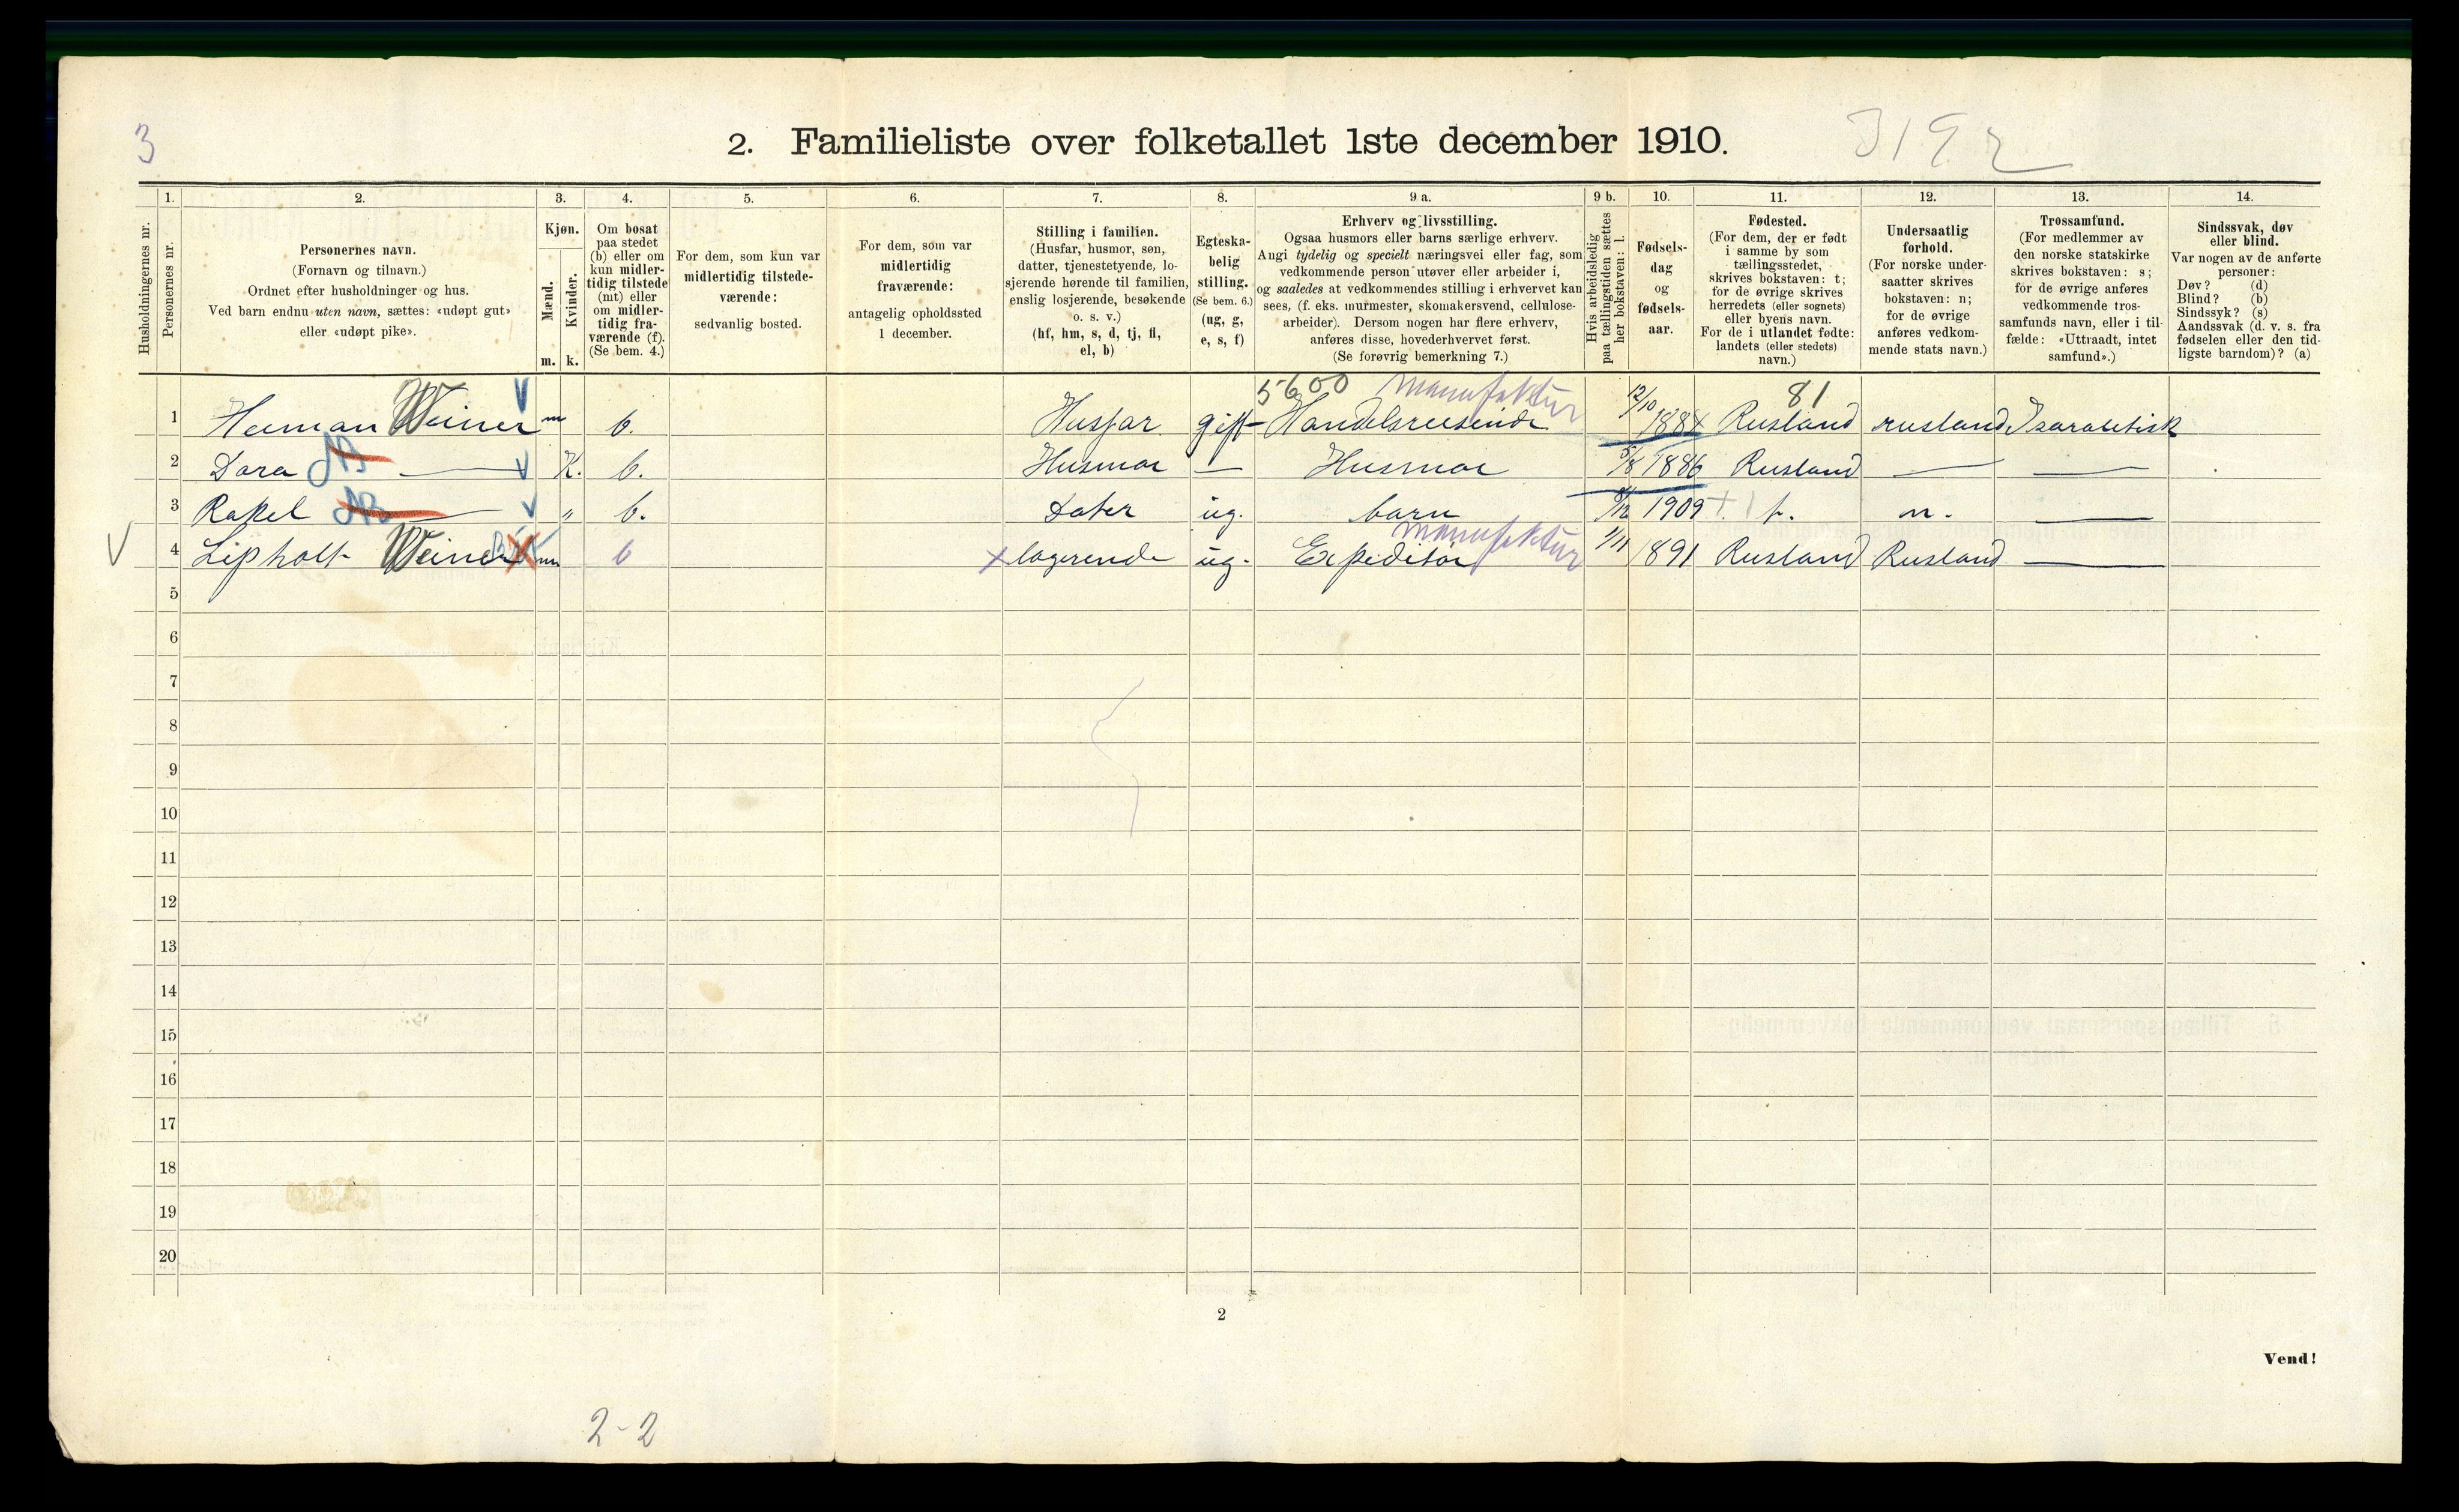 3
2. Familieliste over folketallet 1ste december 1910.
3192
Husholdningernes nr.
1.
Personernes nr.
2.
Personernes navn.
(Fornavn og tilnavn.)
Ordnet efter husholdninger og hus.
Ved barn endnu uten navn, sættes: «udøpt gut»
eller «udøpt pike».
3.
Kjøn.
Mænd.
Kvinder.
m. k.
4.
Om bosat
paa stedet
(b) eller om
kun midler-
tidig tilstede
(mt) eller
om midler-
tidig fra-
værende (f).
(Se bem. 4.)
5.
For dem, som kun var
midlertidig tilstede-
værende:
sedvanlig bosted.
6.
For dem, som var
midlertidig
fraværende:
antagelig opholdssted
1 december.
7.
Stilling i familien.
(Husfar, husmor, søn,
datter, tjenestetyende, lo-
sjerende hørende til familien,
enslig losjerende, besøkende
o. s. v.)
(hf, hm, s, d, tj, fl,
el, b)
8.
Egteska-
belig
stilling.
(Se bem. 6.)
(ug, g,
e, s, f)
9 a.
Erhverv og livsstilling.
Ogsaa husmors eller barns særlige erhverv.
Angi tydelig og specielt næringsvei eller fag, som
vedkommende person utøver eller arbeider i,
og saaledes at vedkommendes stilling i erhvervet kan
sees, (f. eks. murmester, skomakersvend, cellulose-
arbeider). Dersom nogen har flere erhverv,
anføres disse, hovederhvervet først.
(Se forøvrig bemerkning 7.)
9 b.
Hvis arbeidsledig
paa tællingstiden sættes
her bokstaven: l.
10.
Fødsels-
dag
og
fødsels-
aar.
11.
Fødested.
(For dem, der er født
i samme by som
tællingsstedet,
skrives bokstaven: t;
for de øvrige skrives
herredets (eller sognets)
eller byens navn.
For de i utlandet fødte:
landets (eller stedets)
navn.)
12.
Undersaatlig
forhold.
(For norske under-
saatter skrives
bokstaven: n;
for de øvrige
anføres vedkom-
mende stats navn.)
13.
Trossamfund.
(For medlemmer av
den norske statskirke
skrives bokstaven: s;
for de øvrige anføres
vedkommende tros-
samfunds navn, eller i til-
fælde: «Uttraadt, intet
samfund».)
14.
Sindssvak, døv
eller blind.
Var nogen av de anførte
personer:
Døv? (d)
Blind? (b)
Sindssyk? (s)
Aandssvak (d. v. s. fra
fødselen eller den tid-
ligste barndom)? (a)
5600 manufaktur 81
1 Herman Weiner m b. Husfar gift Handelsreisende 12/10 1884 Rusland rusland Isaraletisk
2 Dora — K. b. Husmor — Husmor 5/8 1886 Rusland — —
3 Rakel — „ b. Dater ug. barn 1909 t. n. —
manufaktur
4 Lipholt Weiner m b lagerende ug. Expeditør 1/11 1891 Rusland Rusland —
5
6
7
8
9
10
11
12
13
14
15
16
17
18
19
20
2
Vend!
2-2